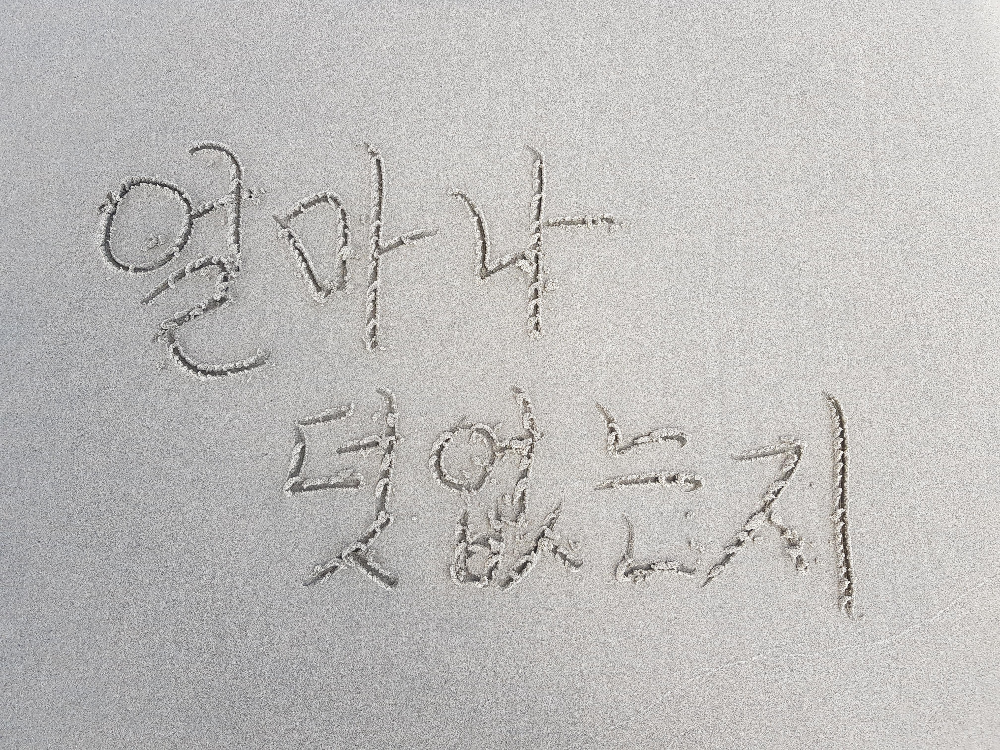 얼마나
덧없는지